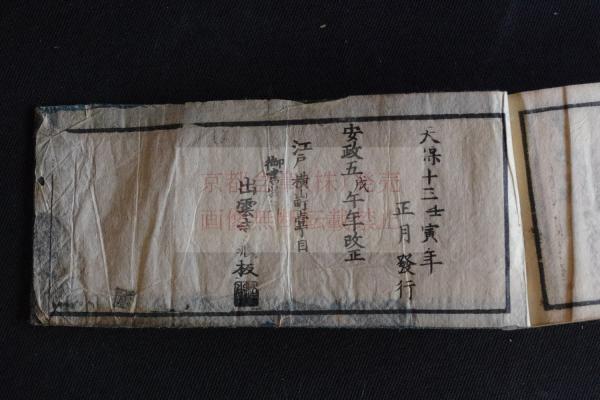 天保十三壬寅年
正月發行
安政五戊午年改正
江戸横山町壹丁目
御書
出雲寺 板
京都 (株) 発売
画像無断転載禁止